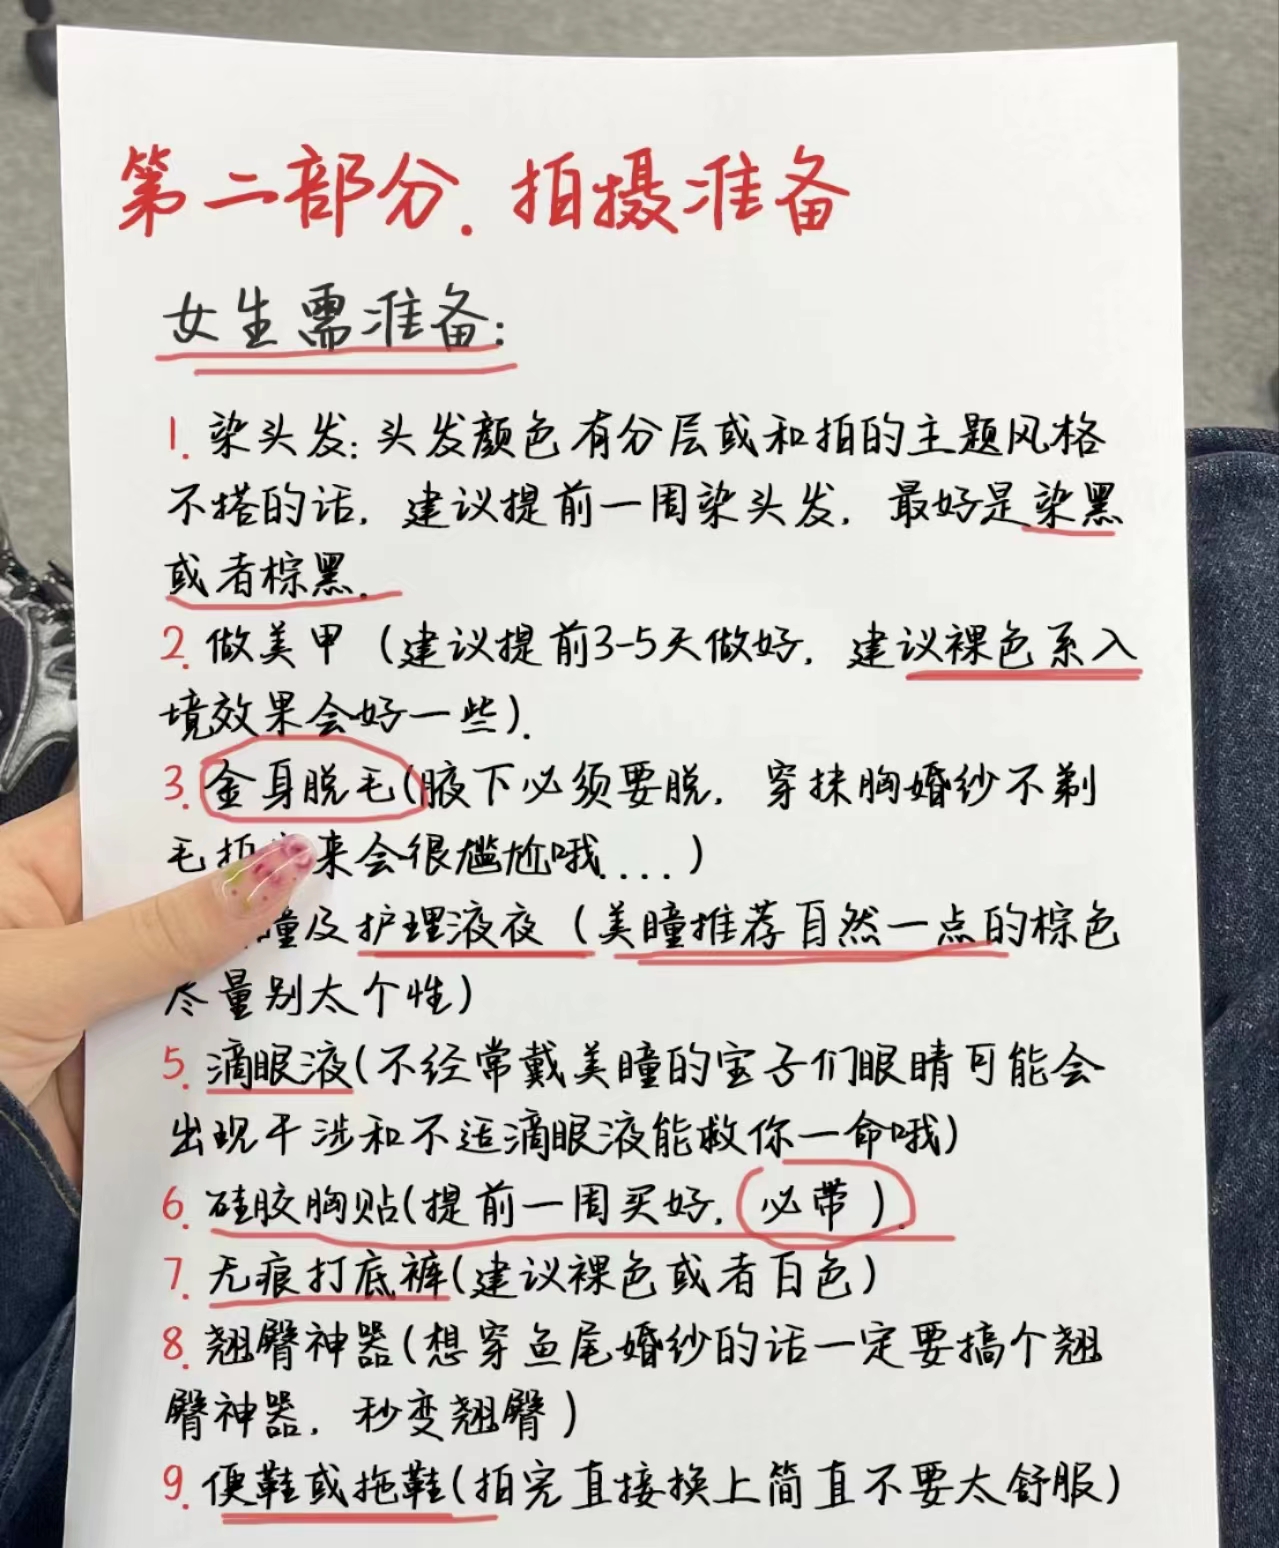 第二部分.拍摄准备
女生需准备:
1.染头发:头发颜色有分层或和拍的主题风格
不搭的话,建议提前一周染头发,最好是染黑
或者棕黑.
2.做美甲(建议提前3-5天做好,建议裸色系入
境效果会好一些).
3.全身脱毛(腋下必须要脱,穿抹胸婚纱不剃
毛拍来会很尴尬哦....)
瞳及护理液夜(美瞳推荐自然一点的棕色
尽量别太个性)
5.滴眼液(不经常戴美瞳的宝子们眼睛可能会
出现干涉和不适滴眼液能救你一命哦)
6.硅胶胸贴(提前一周买好,必带).
7.无痕打底裤(建议裸色或者白色)
8.翘臀神器(想穿鱼尾婚纱的话一定要搞个翘
臀神器,秒变翘臀)
9.便鞋或拖鞋(拍完直接换上简直不要太舒服)